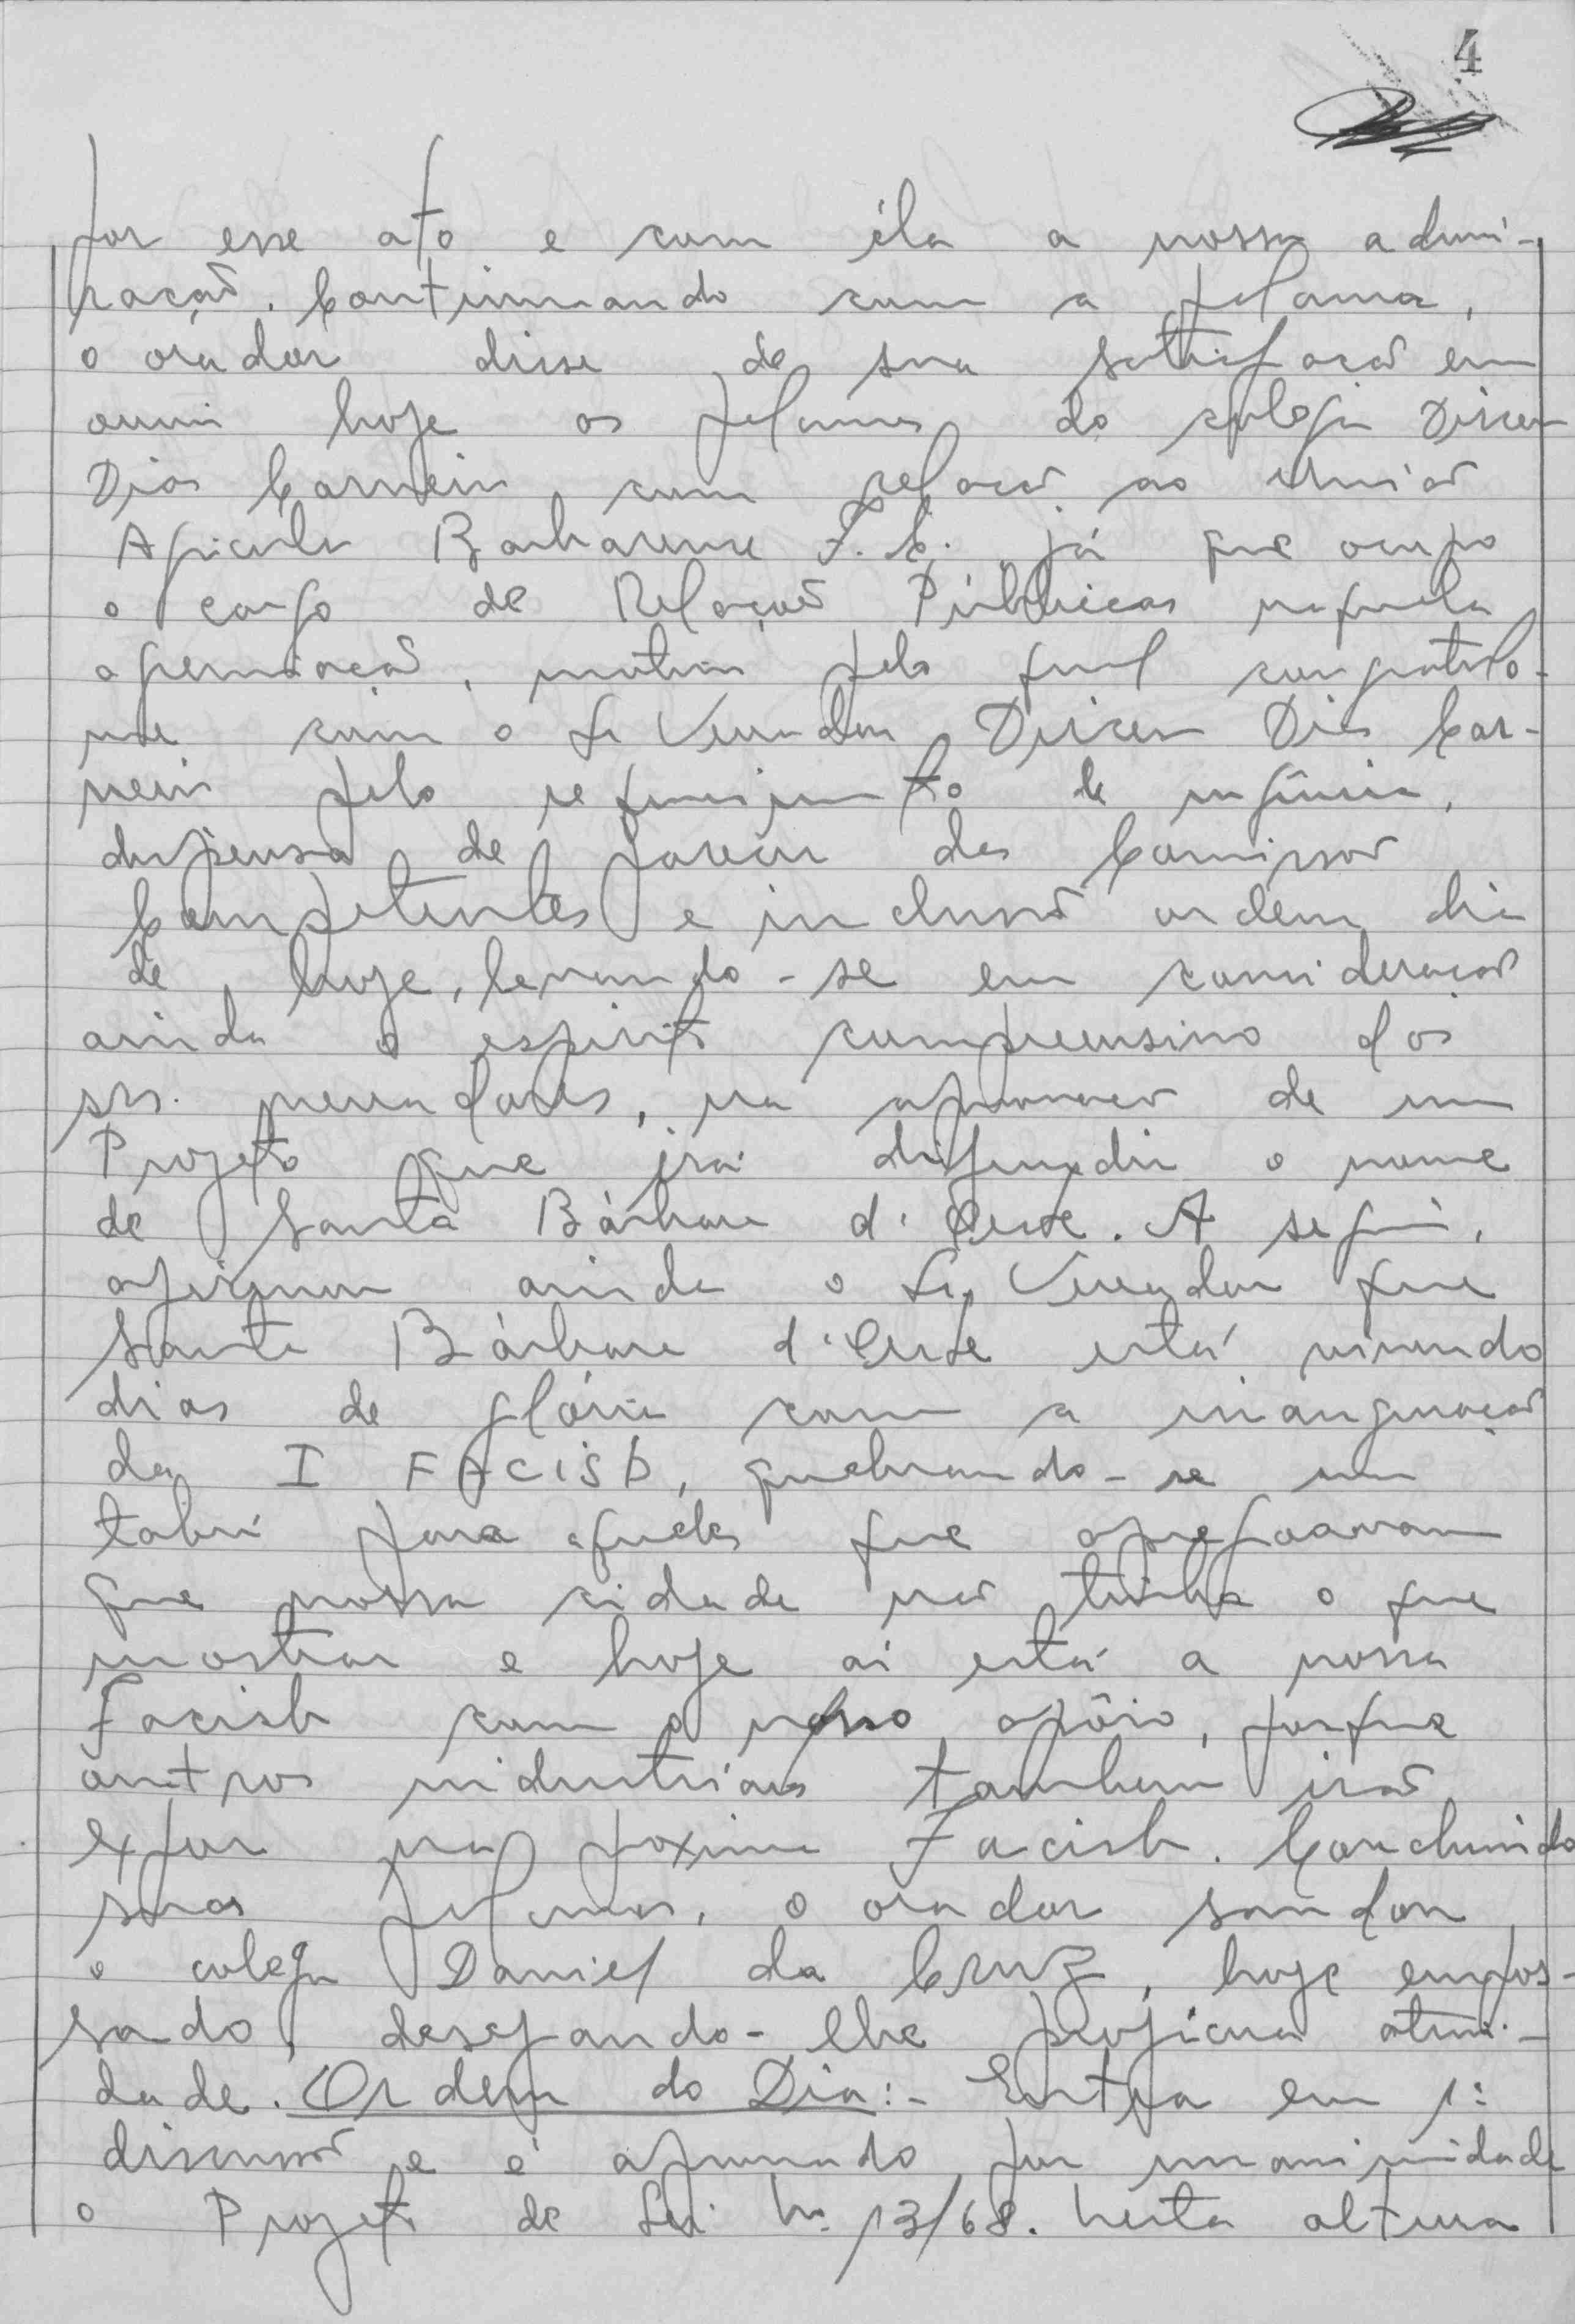 4
por esse ato e com éla a nossa admi-
ração. Continuando com a palavra,
o orador disse de sua satisfação em
ouvir hoje as palavras do colega Dirceu
Dias Carneiro, com relação ao União
Agricola Barbarense F.C. já que ocupo
o cargo de Relações Públicas naquela
agremiação, motivo pelo qual congratulo-
me com o Sr Vereador Dirceu Dias Car-
neiro pelo requerimento de urgência,
dispensa de parecer das Comissões
Competentes e inclusão ordem dia
de hoje, levando-se em consideração
ainda o espirito compreensivo dos
srs. vereadores, na aprovação de um
Projeto que irá difundir o nome
de Santa Bárbara d'Oeste. A seguir,
afirmou ainda o Sr. Vereador que
Santa Bárbara d'Oeste está vivendo
dias de glória com a inauguração
da I FACISB, quebrando-se um
tabú para aqueles que apregoavam
que nossa cidade não tinha o que
mostrar e hoje aí está a nossa
Facisb com o nosso apôio, porque
outros industriais tambem irão
expor na proxima Facisb. Concluindo
suas palavras, o orador saudou
o colega Daniel da Cruz, hoje empos-
sado, desejando-lhe profícua ativi-
dade. Ordem do Dia:- Entra em 1ª
discussão e é aprovado por unanimidade
o Projeto de Lei Nº 13/68. Nesta altura